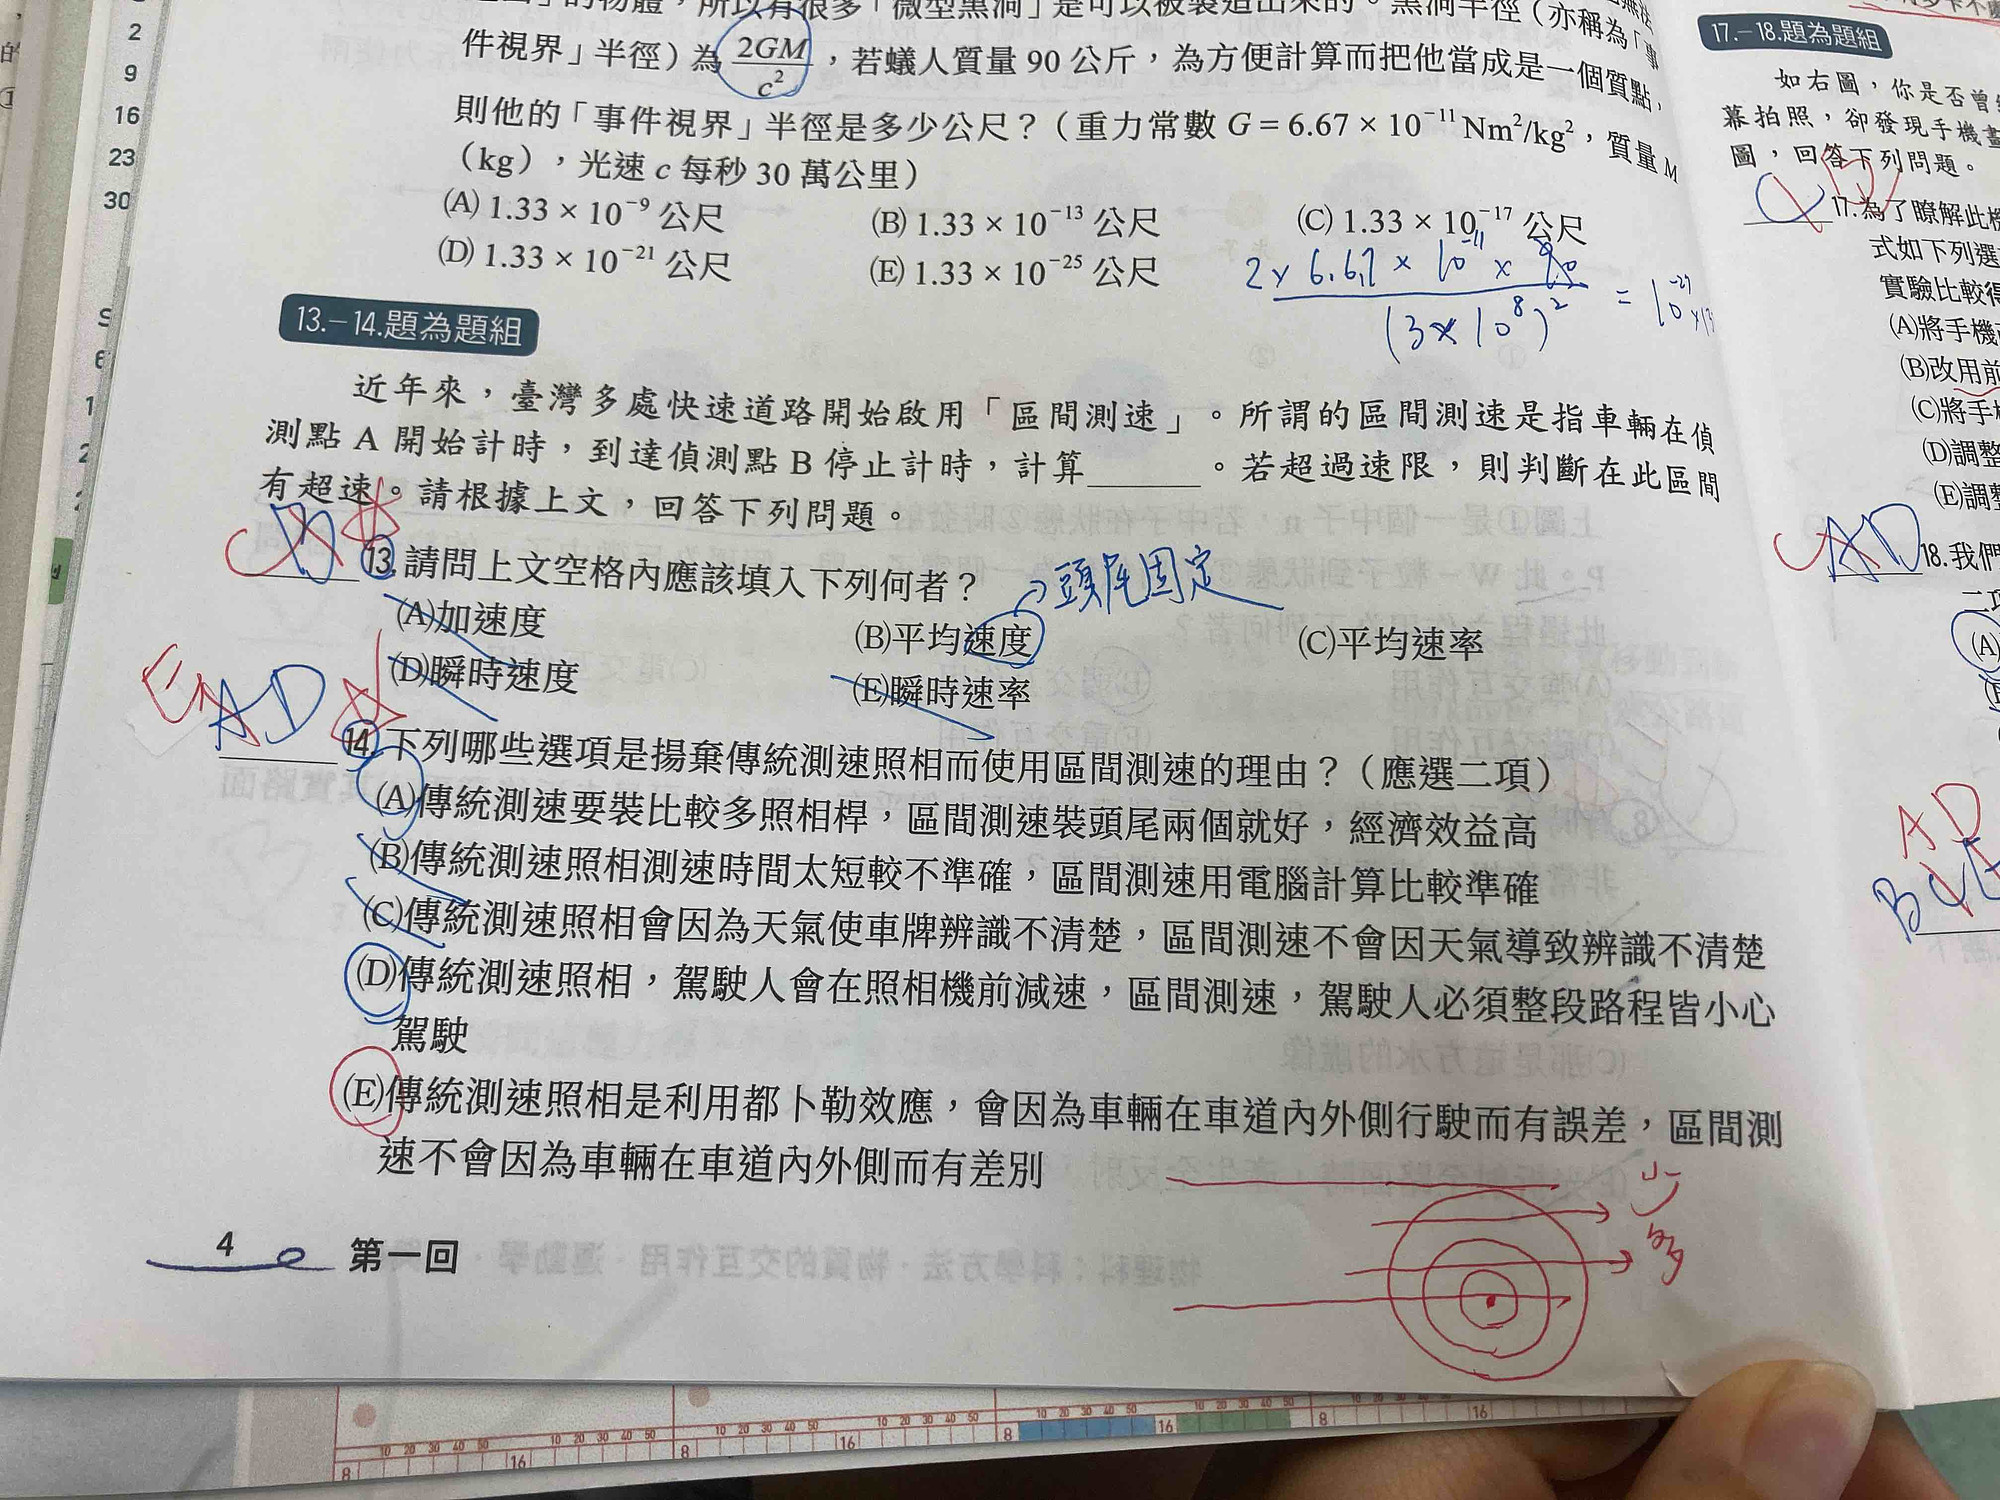 件視界」半徑）為 2GM/c² ，若蟻人質量 90 公斤，為方便計算而把他當成是一個質點，
則他的「事件視界」半徑是多少公尺？（重力常數 G = 6.67 × 10⁻¹¹ Nm²/kg²，質量 M
（kg），光速 c 每秒 30 萬公里）
(A) 1.33 × 10⁻⁹ 公尺 (B) 1.33 × 10⁻¹³ 公尺 (C) 1.33 × 10⁻¹⁷ 公尺
(D) 1.33 × 10⁻²¹ 公尺 (E) 1.33 × 10⁻²⁵ 公尺
13.－14.題為題組
近年來，臺灣多處快速道路開始啟用「區間測速」。所謂的區間測速是指車輛在偵
測點 A 開始計時，到達偵測點 B 停止計時，計算______。若超過速限，則判斷在此區間
有超速。請根據上文，回答下列問題。
13.請問上文空格內應該填入下列何者？
頭尾固定
(A)加速度 (B)平均速度 (C)平均速率
(D)瞬時速度 (E)瞬時速率
AD
14.下列哪些選項是揚棄傳統測速照相而使用區間測速的理由？（應選二項）
(A)傳統測速要裝比較多照相桿，區間測速裝頭尾兩個就好，經濟效益高
(B)傳統測速照相測速時間太短較不準確，區間測速用電腦計算比較準確
(C)傳統測速照相會因為天氣使車牌辨識不清楚，區間測速不會因天氣導致辨識不清楚
(D)傳統測速照相，駕駛人會在照相機前減速，區間測速，駕駛人必須整段路程皆小心
駕駛
(E)傳統測速照相是利用都卜勒效應，會因為車輛在車道內外側行駛而有誤差，區間測
速不會因為車輛在車道內外側而有差別
少
多
4 第一回
17.－18.題為題組
如右圖，你是否曾
幕拍照，卻發現手機
圖，回答下列問題。
17.為了瞭解此
式如下列選
實驗比較得
(A)將手機
(B)改用前
(C)將手
(D)調整
(E)調整
AD
18.我們
二項
(A)
AD
2
9
16
23
30